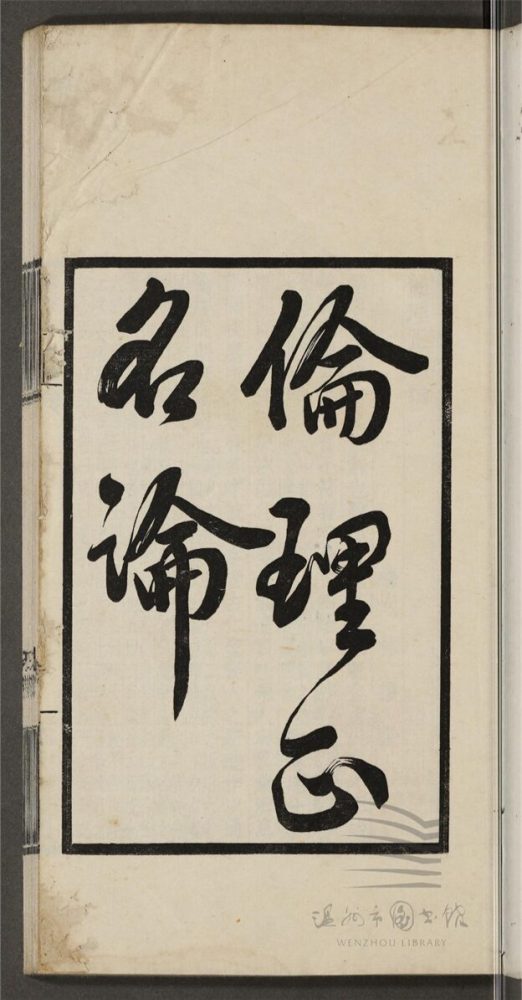 倫理正
名論
温州市图书馆
WENZHOU LIBRARY